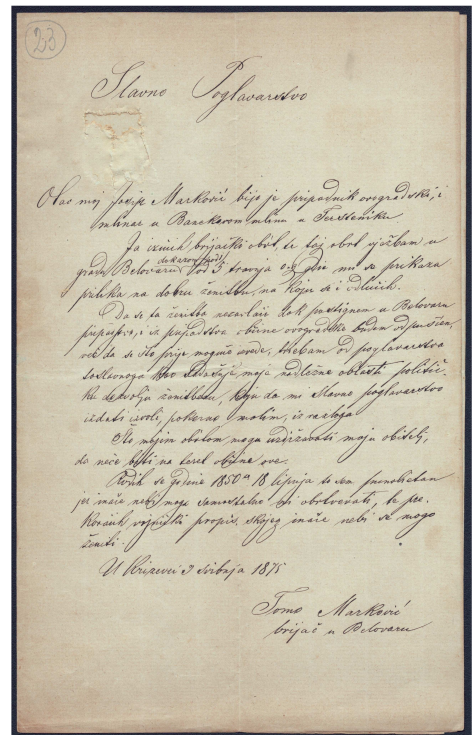 23
Slavno Poglavarstvo
Otac moj Josip Marković bijo je pripadnik ovogradski, i
mlinar u mlinu u
Ja izučih brijački obrt, te taj obrt vježbam u
gradu Belovaru od 5 travnja o. g. mi se prikaza
prilika na dobru ženitbu, na koju se i odlučih.
Da se ta ženitba nezavlači dok postignem u Belovaru
pripadstvo, i iz pripadstva obćine ovogradske budem odpušćen,
već da se što prije moguće uvede, trebam od poglavarstva
toslavnoga kao moje nadležne oblasti politič-
ku dozvolju ženitbenu, koju da mi Slavno poglavarstvo
izdati izvoli, pokorno molim, iz razloga
što mojim obrtom mogu uzdržavati moju obitelj,
da neće biti na teret obćine ove.
Rodih se godine 1850 18 lipnja te sam punoljetan
jer inače nebi mogo samostalno obrtovati, te pre-
koračih vojnički propis, s kojeg inače nebi se mogo
ženiti.
U Križevci 3 Svibnja 1875
Tomo Marković
brijač u Belovaru